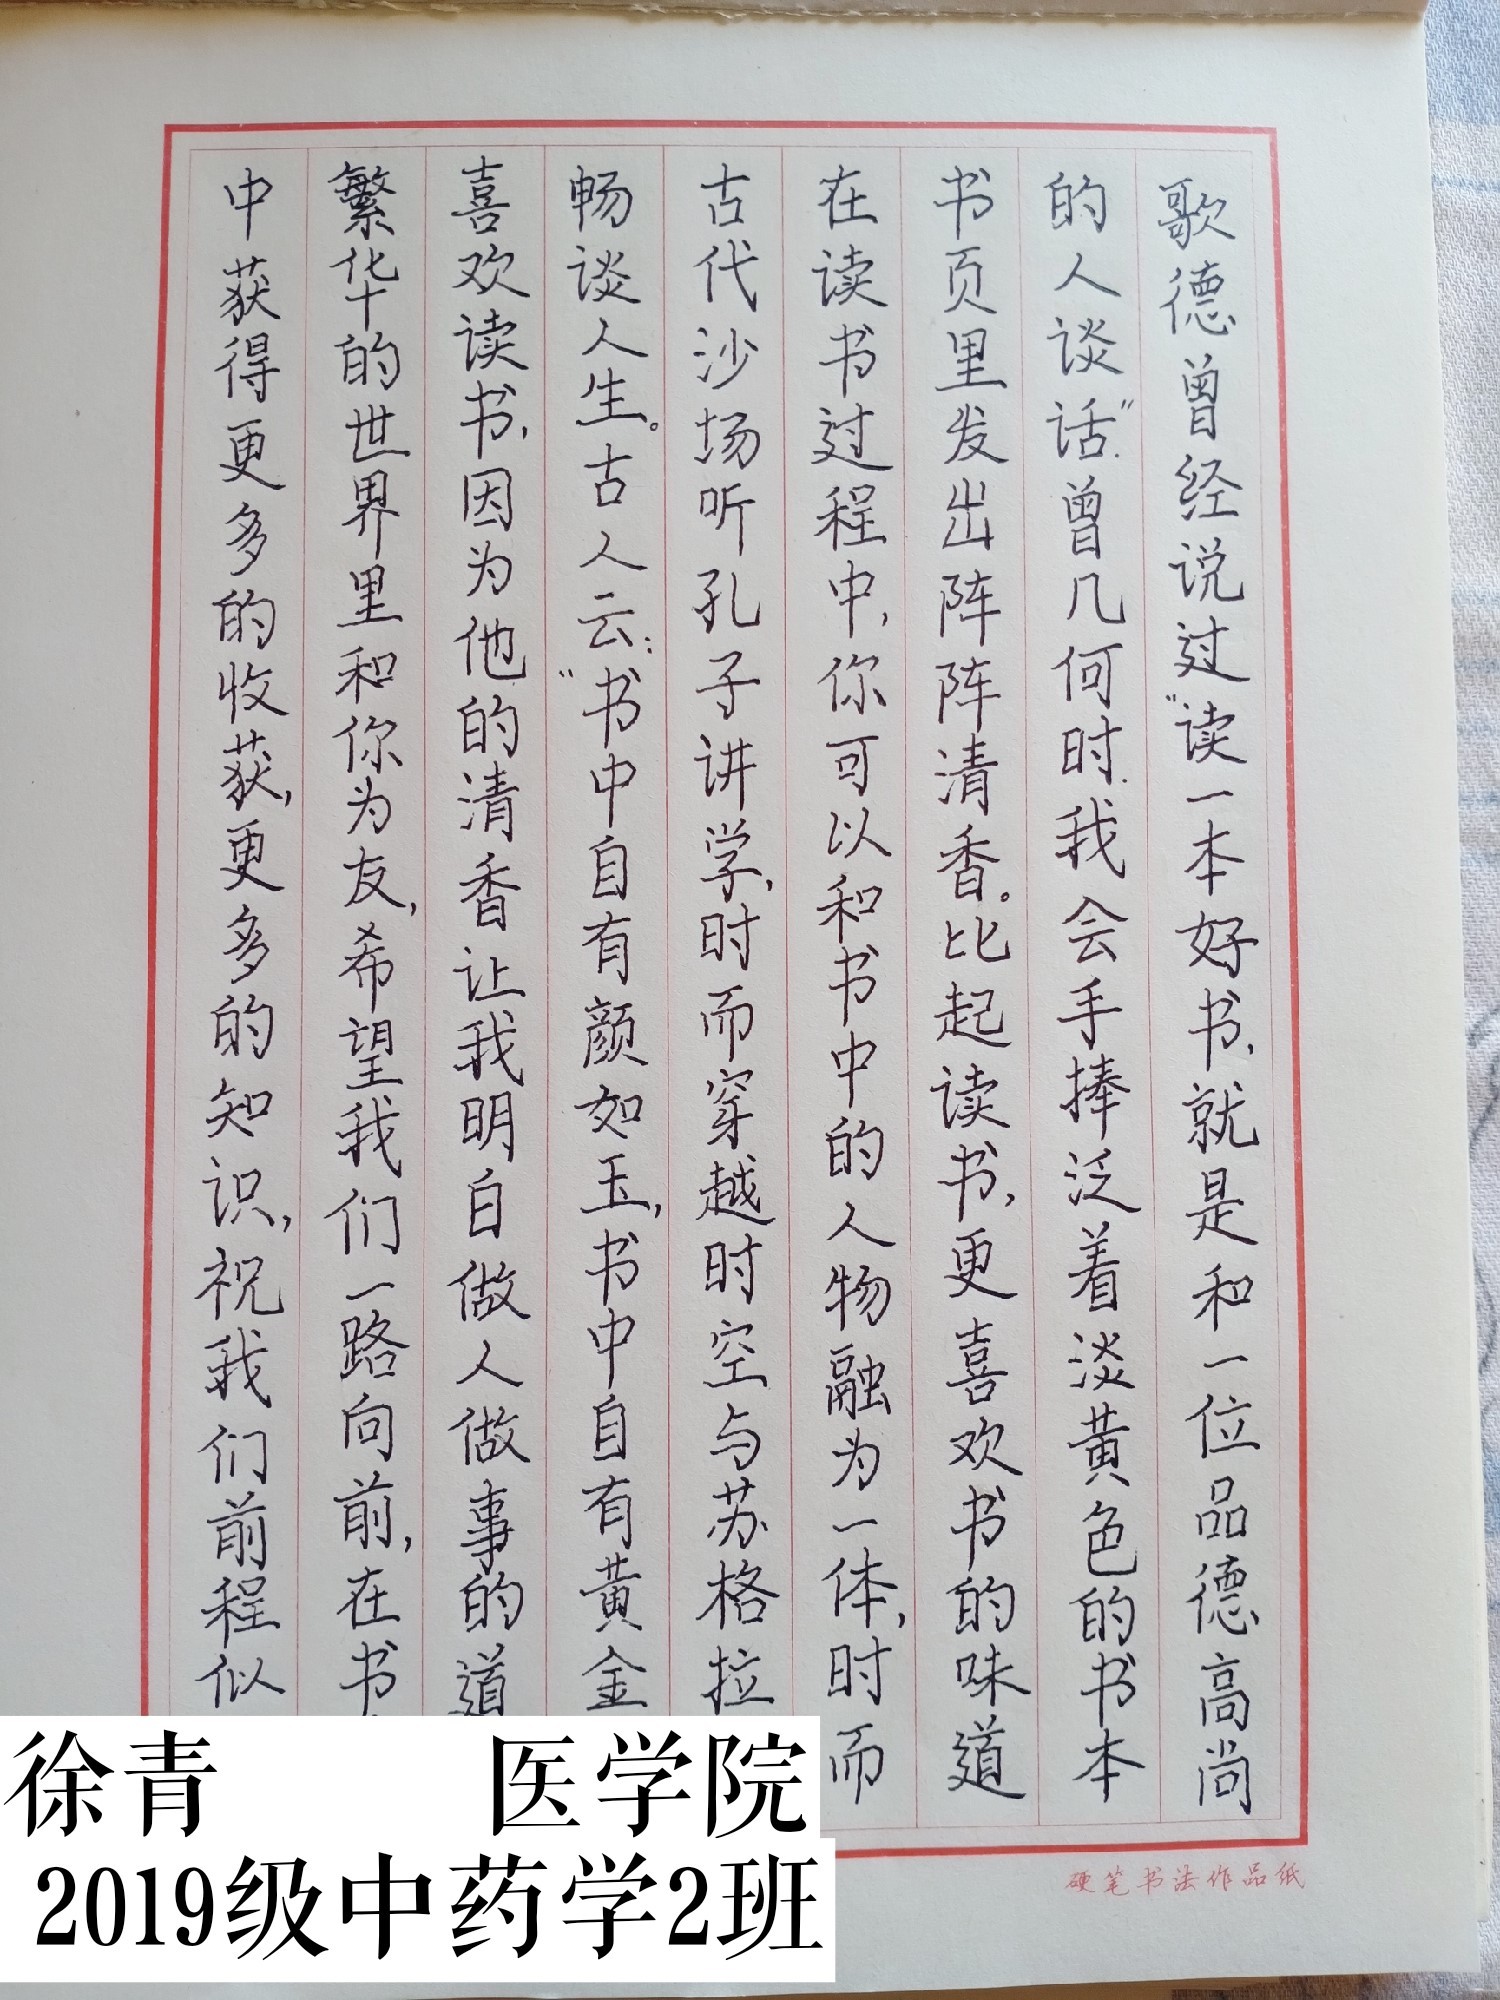 歌德曾经说过“读一本好书,就是和一位品德高尚
的人谈话”.曾几何时.我会手捧泛着淡黄色的书本
书页里发出阵阵清香。比起读书,更喜欢书的味道
在读书过程中,你可以和书中的人物融为一体,时而
古代沙场听孔子讲学,时而穿越时空与苏格拉
畅谈人生。古人云:“书中自有颜如玉,书中自有黄金
喜欢读书,因为他的清香让我明白做人做事的道
繁华的世界里和你为友,希望我们一路向前,在书
中获得更多的收获,更多的知识,祝我们前程似
硬笔书法作品纸
徐青 医学院
2019级中药学2班